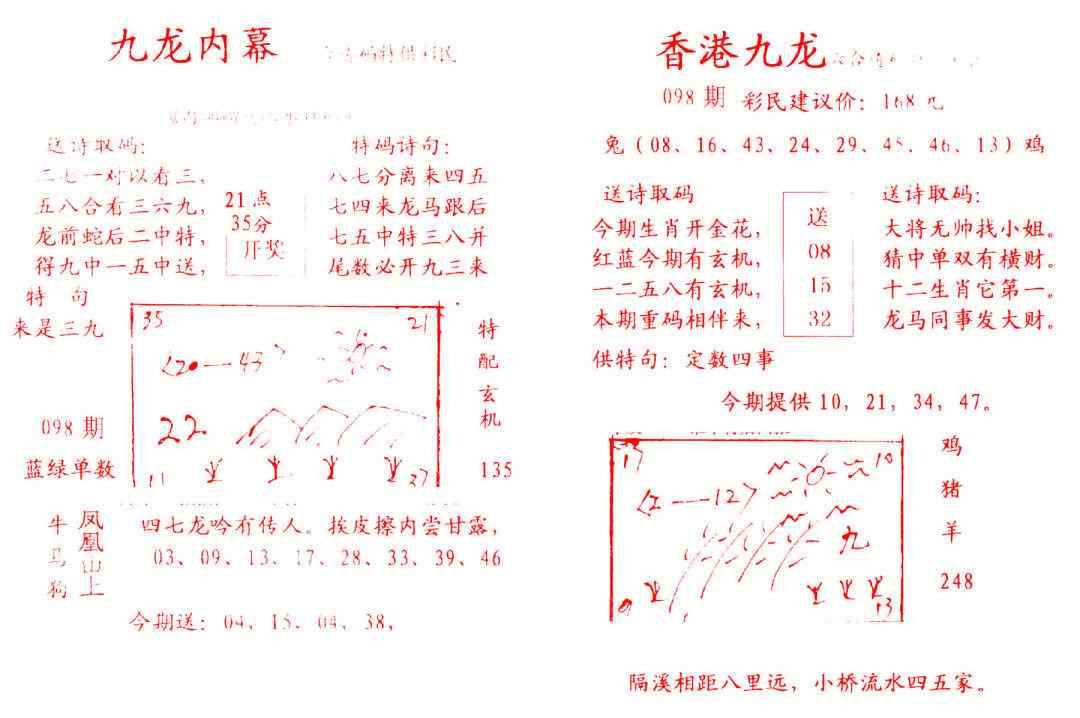 九龙内幕
送诗取码:
二七一对以看三,
五八合看三六九,
龙前蛇后二中特,
得九中一五中送,
21点
35分
开奖
特码诗句:
八七分离来四五
七四来龙马跟后
七五中特三八并
尾数必开九三来
特 句
来是三九
098 期
蓝绿单数
35
21
<20—43>
22
11
37
特配玄机
135
牛马狗
凤凰山上
四七龙吟有传人。挨皮擦内尝甘露,
03、09、13、17、28、33、39、46
今期送: 04、15、04、38,
香港九龙
098 期 彩民建议价: 168 元
兔(08、16、43、24、29、45、46、13)鸡
送诗取码
今期生肖开金花,
红蓝今期有玄机,
一二五八有玄机,
本期重码相伴来,
送
08
15
32
送诗取码:
大将无帅找小姐。
猜中单双有横财。
十二生肖它第一。
龙马同事发大财。
供特句: 定数四事
今期提供 10, 21, 34, 47。
17
10
<2—12>
九
9
13
鸡
猪
羊
248
隔溪相距八里远, 小桥流水四五家。